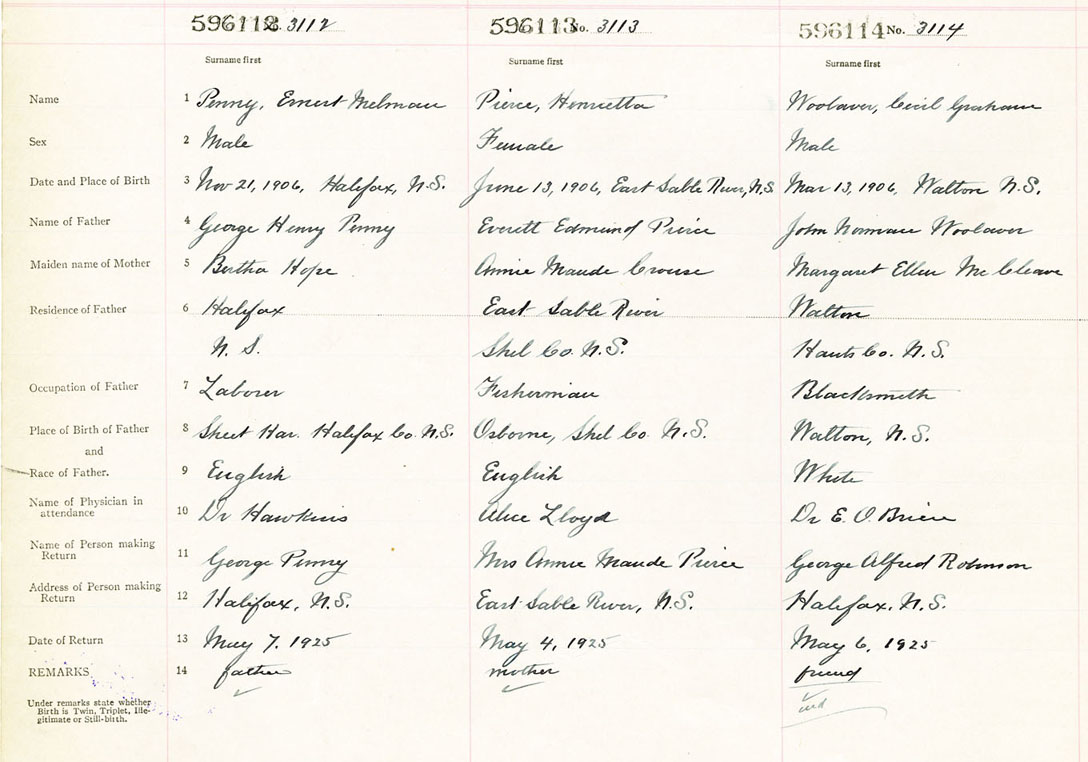 596112 No. 3112 596113 No. 3113 596114 No. 3114
Surname first Surname first Surname first
Name 1 Penny, Ernest Melman Pierce, Henrietta Woolaver, Cecil Graham
Sex 2 Male Female Male
Date and Place of Birth 3 Nov 21, 1906, Halifax, N.S. June 13, 1906, East Sable River, N.S. Mar 13, 1906, Walton N.S.
Name of Father 4 George Henry Penny Everett Edmund Pierce John Norman Woolaver
Maiden name of Mother 5 Bertha Hope Annie Maude Crouse Margaret Ellen McCleave
Residence of Father 6 Halifax East Sable River Walton
N. S. Shel Co. N.S. Hants Co. N.S.
Occupation of Father 7 Laborer Fisherman Blacksmith
Place of Birth of Father 8 Sheet Har. Halifax Co. N.S. Osborne, Shel Co. N.S. Walton, N.S.
and
Race of Father. 9 English English White
Name of Physician in
attendance 10 Dr Hawkins Alice Lloyd Dr E. O. Brien
Name of Person making
Return 11 George Penny Mrs Annie Maude Pierce George Alfred Robinson
Address of Person making
Return 12 Halifax, N.S. East Sable River, N.S. Halifax, N.S.
Date of Return 13 May 7, 1925 May 4, 1925 May 6, 1925
REMARKS 14 father mother friend
Under remarks state whether
Birth is Twin, Triplet, Ille-
gitimate or Still-birth.